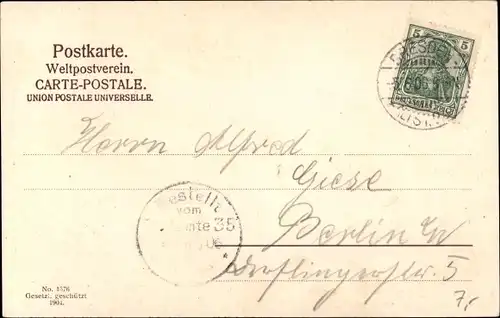 Postkarte.
Weltpostverein.
CARTE-POSTALE.
UNION POSTALE UNIVERSELLE.
5 5
DRESDEN
ALTST.
Herrn Alfred
Giese
Berlin W
Derfflingerstr. 5
Bestellt
vom
Postamte 35
06
No. 1576
Gesetzl. geschützt
1904.
7,-